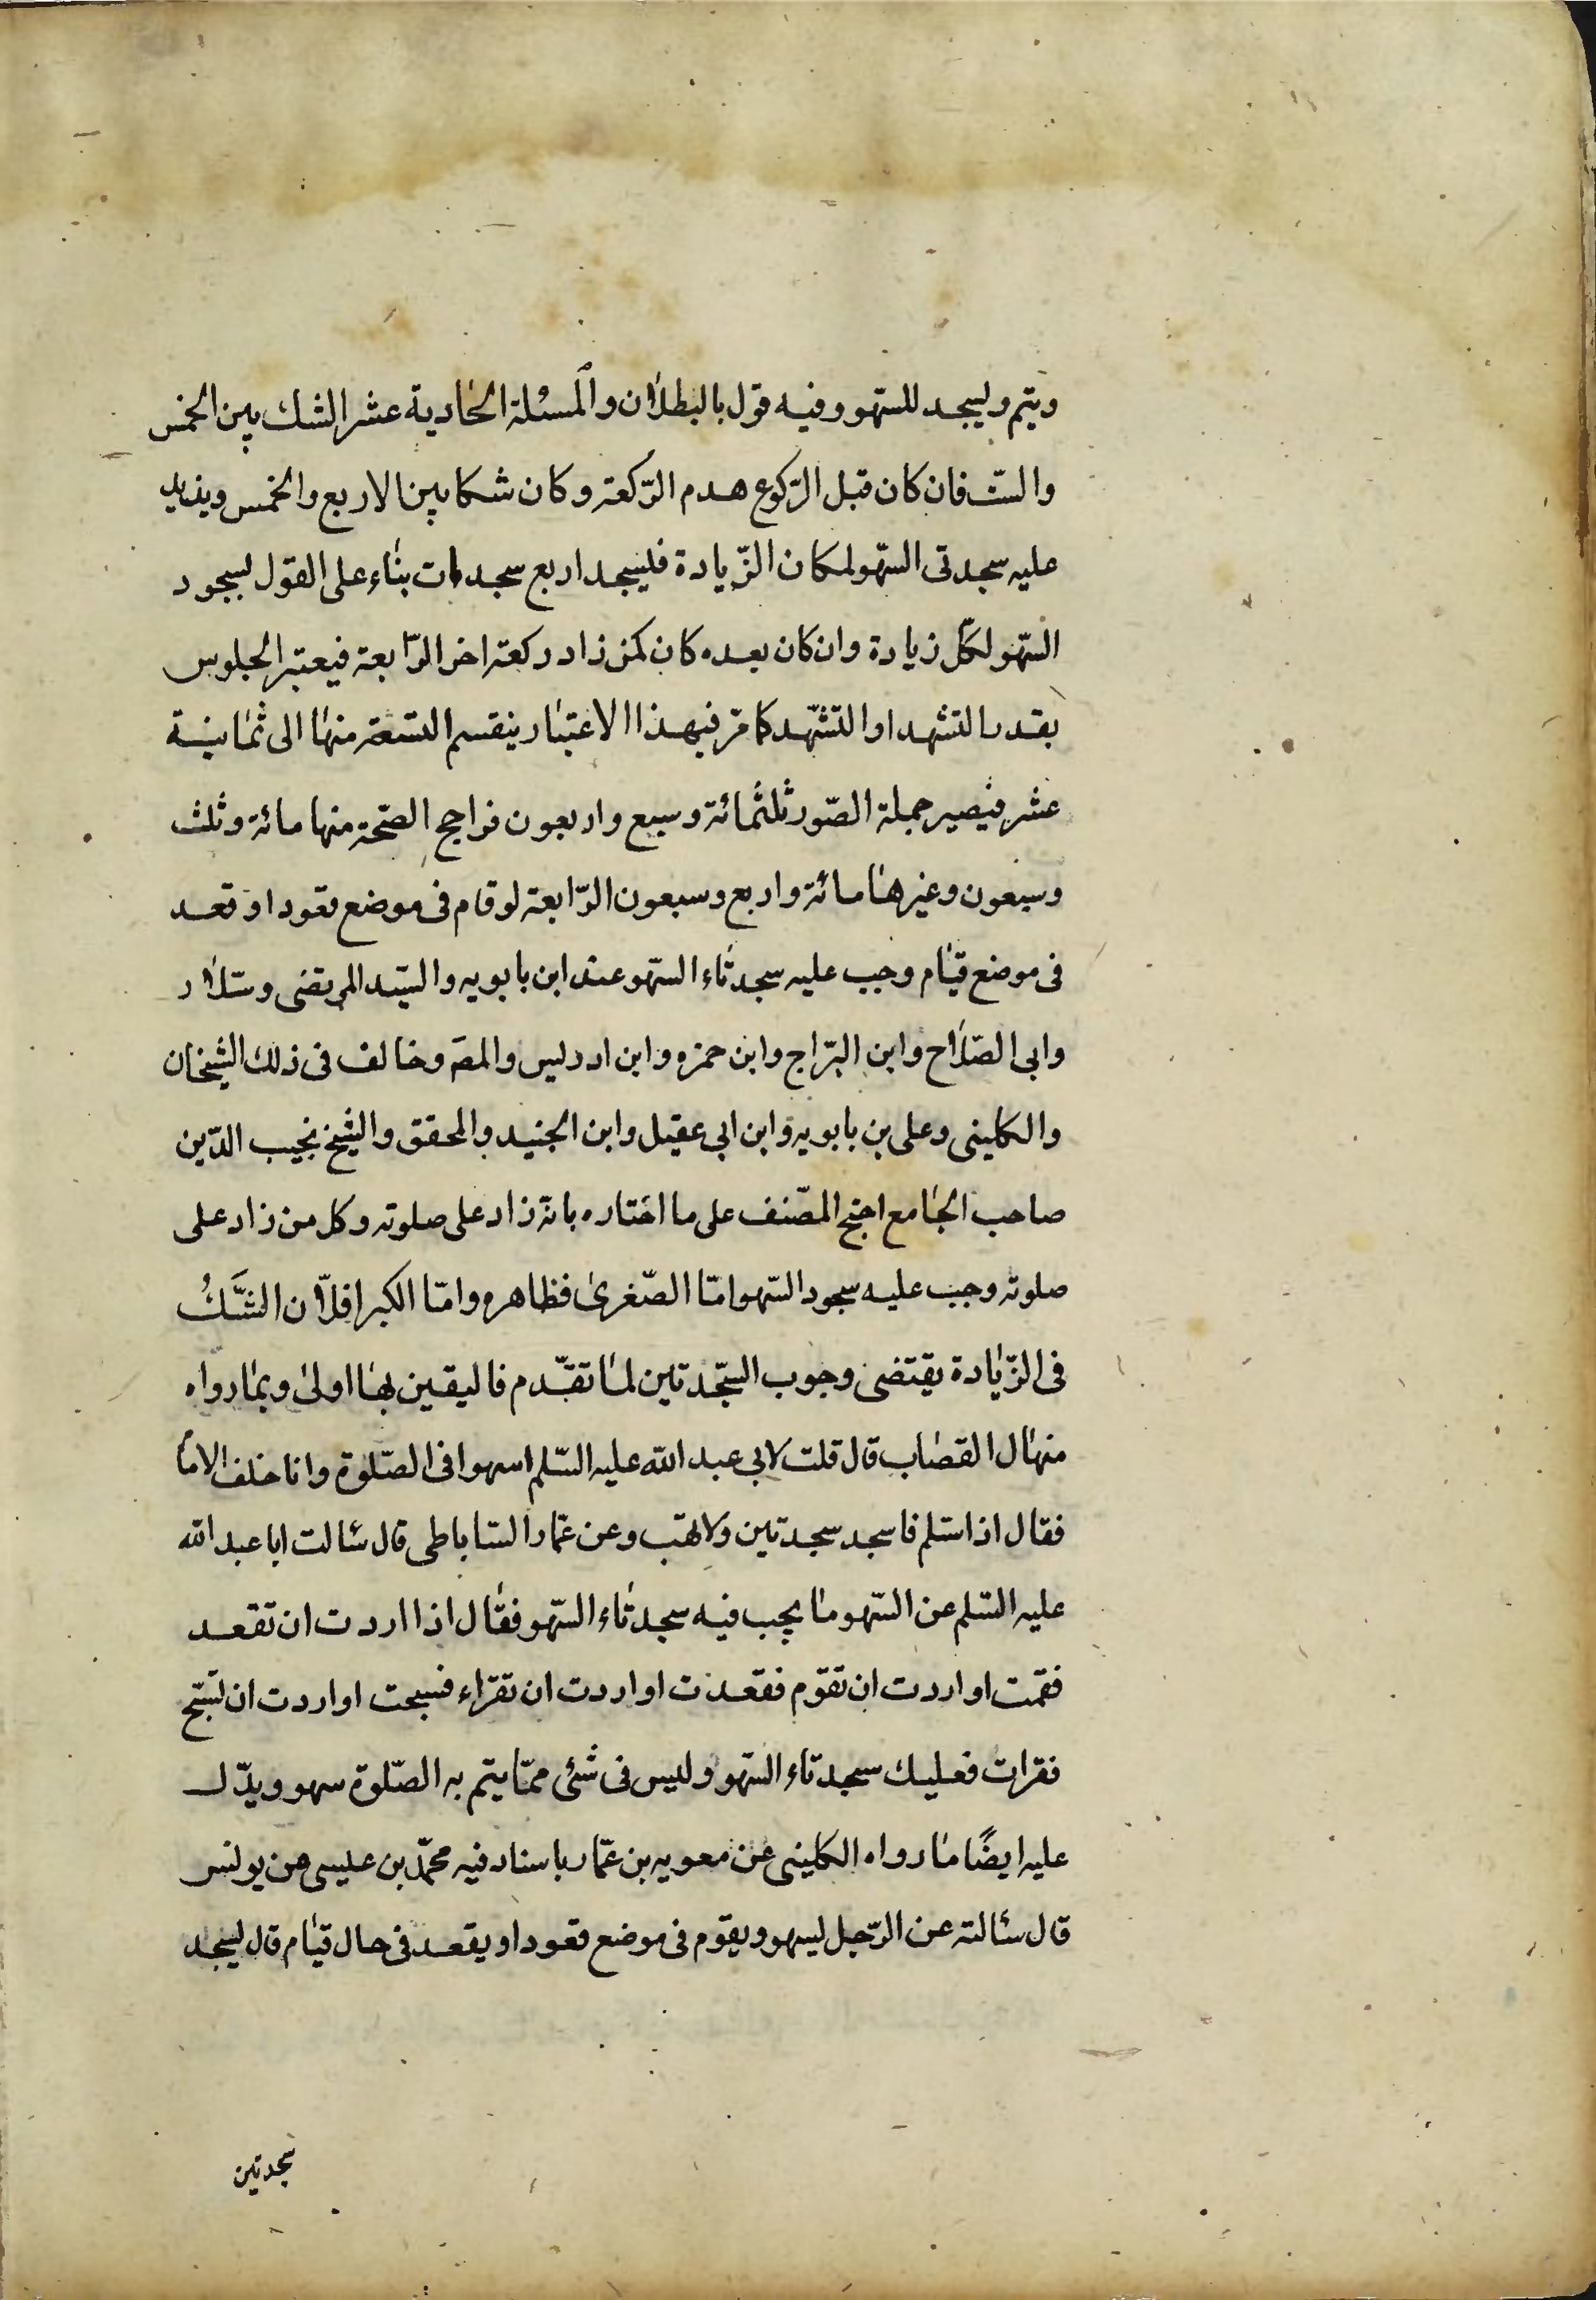 ويتم وليسجد للسّهو وفيه قول بالبطلان والمسئلة الحادية عشر الشك بين الخمس
والستّ فان كان قبل الرّكوع هدم الرّكعة وكان شكا بين الاربع والخمس ويزيد
عليه سجدتى السّهو لمكان الزّيادة فليسجد اربع سجدات بناء على القول لسجود
السّهو لكلّ زيادة وان كان بعده كان كمن زاد ركعة اخر الرّابعة فيعتبر الجلوس
بقدر التشهد او التشهّد كما مرّ فبهذا الاعتبار ينقسم التسعة منها الى ثمانية
عشر فيصير جملة الصّور ثلثمائة وسبع واربعون فراجح الصّحة منها مائة وثلث
وسبعون وغيرها مائة واربع وسبعون الرّابعة لو قام فى موضع قعود او قعد
فى موضع قيام وجب عليه سجدتاء السّهو عند ابن بابويه والسّيد المرتضى وسّلار
وابى الصّلاح وابن البرّاج وابن حمزه وابن ادريس والمصَ وخالف فى ذلك الشيخان
والكلينى وعلى بن بابويه وابن ابى عقيل وابن الجنيد والمحقق والشيخ نجيب الدّين
صاحب الجامع احتج المصّنف على ما اختاره بانّه زاد على صلوته وكل من زاد على
صلوته وجب عليه سجود السّهو امّا الصّغرىٰ فظاهره وامّا الكبرا فلانّ الشَّكُ
فى الزّيادة يقتضى وجوب السّجدتين لما تقدّم فاليقين بها اولىٰ وبما رواه
منهال القصاب قال قلت لابى عبد الله عليه السّلم اسهوا فى الصّلوة وانا خلف الامام
فقال اذا سّلم فاسجد سجدتين ولا تهب وعن عمّار السّاباطى قال سئالت ابا عبد الله
عليه السّلم عن السّهو ما يجب فيه سجدتاء السّهو فقال اذا اردت ان تقعد
فقمت او اردت ان تقوم فقعدت او اردت ان تقراء فسبحت او اردت ان تسّبح
فقرات فعليك سجدتاء السّهو وليس فى شئى ممّا يتم به الصّلوة سهو ويدّل
عليه ايضًا ما رواه الكلينى عن معويه بن عمّار باسناد فيه محمّد بن عليسى عن يونس
قال سئالته عن الرّجل ليسهو ويقوم فى موضع قعود او يقعد فى حال قيام قال ليسجد
سجدتين